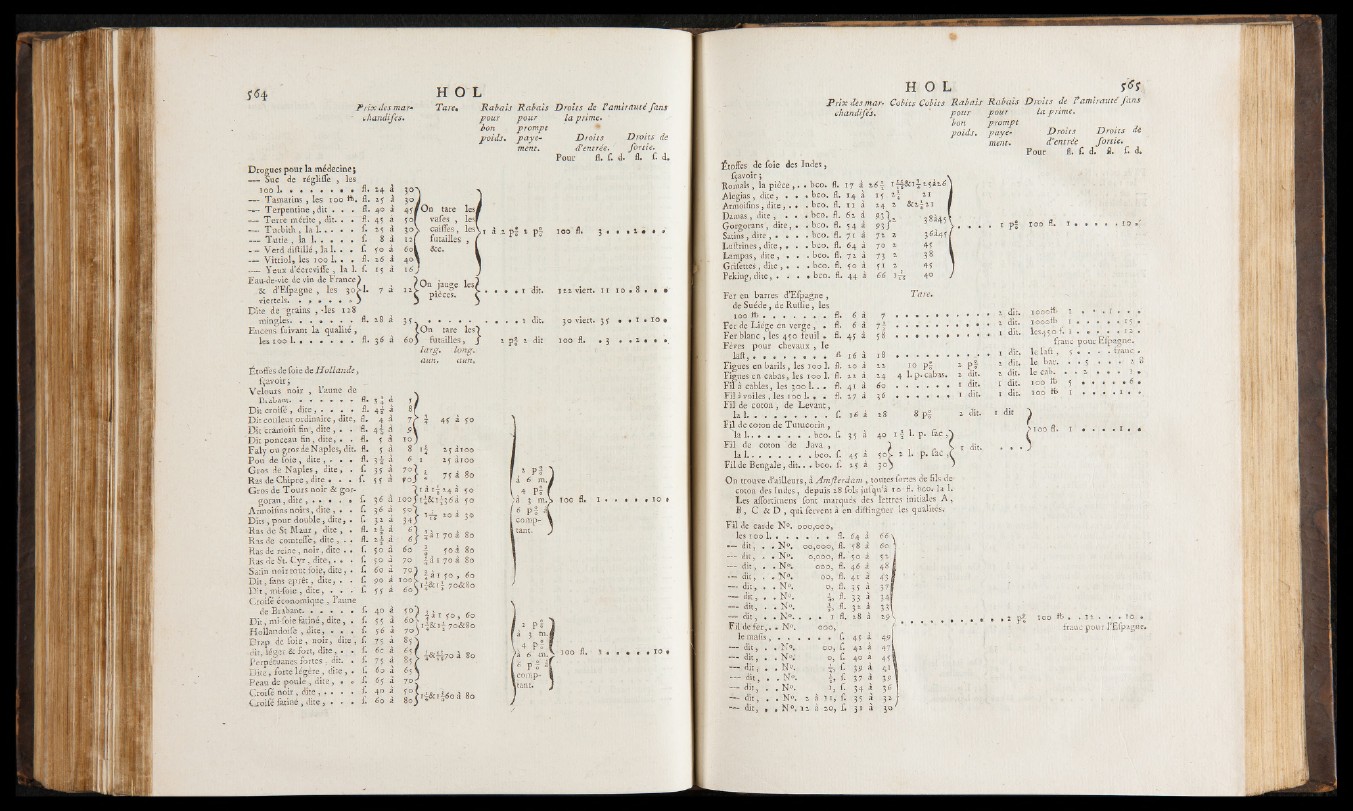 564
HOL
Prix des marchandises. Tare. Rabais pour bon poids. Rabais pour prompt payement. Droits de l'amirauté sans la prime.
Droits d'entrée. Droits de sortie.
Pour fl. s. d. fl. s. d.
Drogues pour la médecine;
— Suc de réglisse , les
100 l. . . . . . . . fl. 24 à 30
— Tamarins , les 100 ℔. fl. 25 à 30
— Terpentine , dit . . . fl. 40 à 45
— Terre mérite , dit. . . fl. 45 à 50
— Turbith , la l. . . . . f. 25 à 30
— Tutie , la l. . . . . f. 8 à 12
— Verd distillé , la l. . . f. 50 à 60
— Vittriol, les 100 l. . . fl. 26 à 40
— Yeux d'écrevisse , la l. f. 15 à 16
On tare les vases , les caisses, les futailles , &c.
1 à 2 p° 2 p° 100 fl. 3 . . . 2 . . .
Eau-de-vie de vin de France
& d'Espagne , les 30 l. 7 à 12
viertels. . . . . . .
On jauge les pièces.
. . . . 1 dit. 122 viert. 11 10 . 8 . . .
Dite de grains , les 128
mingles. . . . . . . fl. 28 à 35 . . . . . . . . . 1 dit. 30 viert. 35 . . 1 . 10 .
Encens suivant la qualité ,
les 100 l. . . . . . . fl. 36 à 60
On tare les futailles,
2 p° 2 dit 100 fl. . 3 . . 2 . . .
larg. long.
aun. aun.
Étoffes de soie de Hollande,
sçavoir ;
Velours noir , l'aune de
Brabant. . . . . . . fl.
Dit croisé , dite , . . . . fl. 4½ à 8
Dit couleur ordinaire , dite, fl. 4 à 7
45 à 50
Dit cramoisi fin , dite , . . fl. 4½ à 9
Dit ponceau fin , dite, . . fl. 5 à 10
Faly ou gros de Naples, dit. fl. 5 à 8 25 à 100
Pou de soie , dite , . . . fl. 3½ à 6 1 25 à 100
Gros de Naples , dite , . f. 35 à 70
Ras de Chipre , dite . . . f. 55 à 90
75 à 80
Gros de Tours noir & gorgoran
, dite , . . . . . f. 36 à 100
Armoisins noirs , dite , . . f. 36 à 50
Dits , pour double , dite, . f. 32 à 34
20 à 30
Ras de St Maur , dite , . fl. 2½ à 6
Ras de comtesse , dite , . . fl. 2½ à 6
à 1 70 à 80
Ras de reine , noir , dite . . f. 50 à 60 50 à 80
Ras de St. Cyr , dite, . . . f. 50 à 70 70 à 80
Satin noir tout soie, dite , . f. 60 à 70
Dit , sans aprêt , dite, . . f. 90 à 100
Dit , mi-soie , dite, . . . f. 55 à 60
à 1 50 , 60
70&80
2 p° à 6 m. 4 p° à 3 m. 6 p° à comptant.
100 fl. 1 . . . . . 10 .
Croisé économique , l'aune
de Brabant. . . . . . f. 40 à 50
Dit, mi-soie satiné , dite, . f. 55 à 60
Hollandoise , dite, . . . f. 56 à 70
à 1 50 , 60
70&80
Drap de soie , noir , dite , f. 75 à 85
dit, léger & fort, dite , . . f. 60 à 65
Perpétuanes fortes , dit. . f. 75 à 85
Dite, forte légère , dite , . f. 60 à 65
70 à 80
Peau de poule , dite , . . f. 65 à 70
Croisé noir , dite , . . . . f. 40 à 50
Croisé satiné , dite , . . . f. 60 à 80
60 à 80
2 p° à 3 m. 4 p° à 6 m. 6 p° à comptant.
100 fl. 1 . . . . . 10 .
HOL
565
Prix des marchandises. Cobits Cobits Rabais pour bon poids. Rabais pour prompt payement. Droits de l'amirauté sans la prime.
Droits d'entrée Droits de sortie.
Pour fl. s. d. fl. s. d.
Étoffes de soie des Indes,
sçavoir ;
Romals , la pièce , . . bco. fl. 17 à 26½
Alegias , dite , . . . bco. fl. 14 à 15 2½ 21
Armoisins , dite, . . . bco. fl. 11 à 24 2 &2½21
Damas , dite , . . . bco. fl. 62 à 93
Gorgorans , dite, . . bco. fl. 54 à 93
2 38à45
Satins , dite , . . . . bco. fl. 71 à 72 2 36à45
Lustrines , dite, . . . bco. fl. 64 à 70 2 45
Lampas, dite , . . . bco. fl. 72 à 73 2 38
Grisettes , dite , . . . bco. fl. 50 à 51 2 45
Peking, dite, . . . . bco. fl. 44 à 66 40
. . . . 1 p° 100 fl. 1 . . . . . 10 .
Tare.
Fer en barres d'Espagne ,
de Suède, de Russie, les
100 ℔ . . . . . . . fl. 6 à 7 . . . . . . . . . 2 dit. 1000℔ 1 . . . 1 . . .
Fer de Liége en verge , . fl. 6 à 7½ . . . . . . . . . 2 dit. 1000℔ 1 . . . . . 15 .
Fer blanc , les 450 feuil . fl. 45 à 58 . . . . . . . . . 1 dit. les 450 f. 1 . . . . . 12 .
franc pour Espagne.
Féves pour chevaux , le
last, . . . . . . . . fl 16 à 18 . . . . . . . . . 1 dit. le last , 5 . . . . franc .
Figues en barils , les 100 l. fl. 20 à 22 10 p° 2 p° 2 dit. le bar. . . 5 . . . . 2 8
Figues en cabas, les 100 l. fl. 22 à 24 4 l. p. cabas. 2 dit. 2 dit. le cab. . . 2 . . . . 1 .
Fil à cables , les 300 l. . . fl. 41 à 60 . . . . . . 1 dit. 1 dit. 100 ℔ 5 . . . . . 6 .
Fil à voiles , les 100 l. . . fl. 27 à 36 . . . . . . 1 dit. 1 dit. 100 ℔ 1 . . . . 1 . .
Fil de coton , de Levant,
la l. . . . . . . . . f. 16 à 28 8 p° 2 dit. 1 dit
Fil de coton de Tutucorin ,
la l. . . . . . . bco. f. 35 à 40 1½ l. p. sac ,
Fil de coton de Java ,
la l. . . . . . . bco. f. 45 à 50
Fil de Bengale , dit. . . bco. f. 25 à 30
2 l. p. sac ,
1 dit. . . .
100 fl. 1 . . . . 1 . .
On trouve d'ailleurs, à Amsterdam , toutes sortes de fils de
coton des Indes , depuis 28 sols jusqu'à 10 fl. bco. la l.
Les assortimens sont marqués des lettres initiales A ,
B , C & D , qui servent à en distinguer les qualités.
Fil de carde N°. 000,000,
les 100 l. . . . . . . fl. 64 à 66
— dit , . . N°. 00,000, fl. 58 à 60
— dit , . . N°. 0,000, fl. 50 à 52
— dit , . . N°. 000, fl. 46 à 48
— dit , . . N°. 00, fl. 41 à 43
— dit , . . N°. 0, fl. 35 à 37
— dit , . . N°. fl. 33 à 34
— dit , . . N°. fl. 32 à 33
— dit , . . N°. . . . 1 fl. 28 à 29
. . . . . . . . . 2 p° 100 fl. . . 12 . . . 10 .
franc pour l'Espagne.
Fil de fer, . . N°. 000,
le masis , . . . . . . f. 45 à 49
— dit , . . N°. 00, f. 42 à 47
— dit , . . N°. 0, f. 40 à 45
— dit , . . N°. f. 39 à 41
— dit , . . N°. f. 37 à 39
— dit , . . N°. 1, f. 34 à 36
— dit , . . N°. 2 à 11, f. 35 à 32
— dit , . . N°. 12 à 20, f. 31 à 30